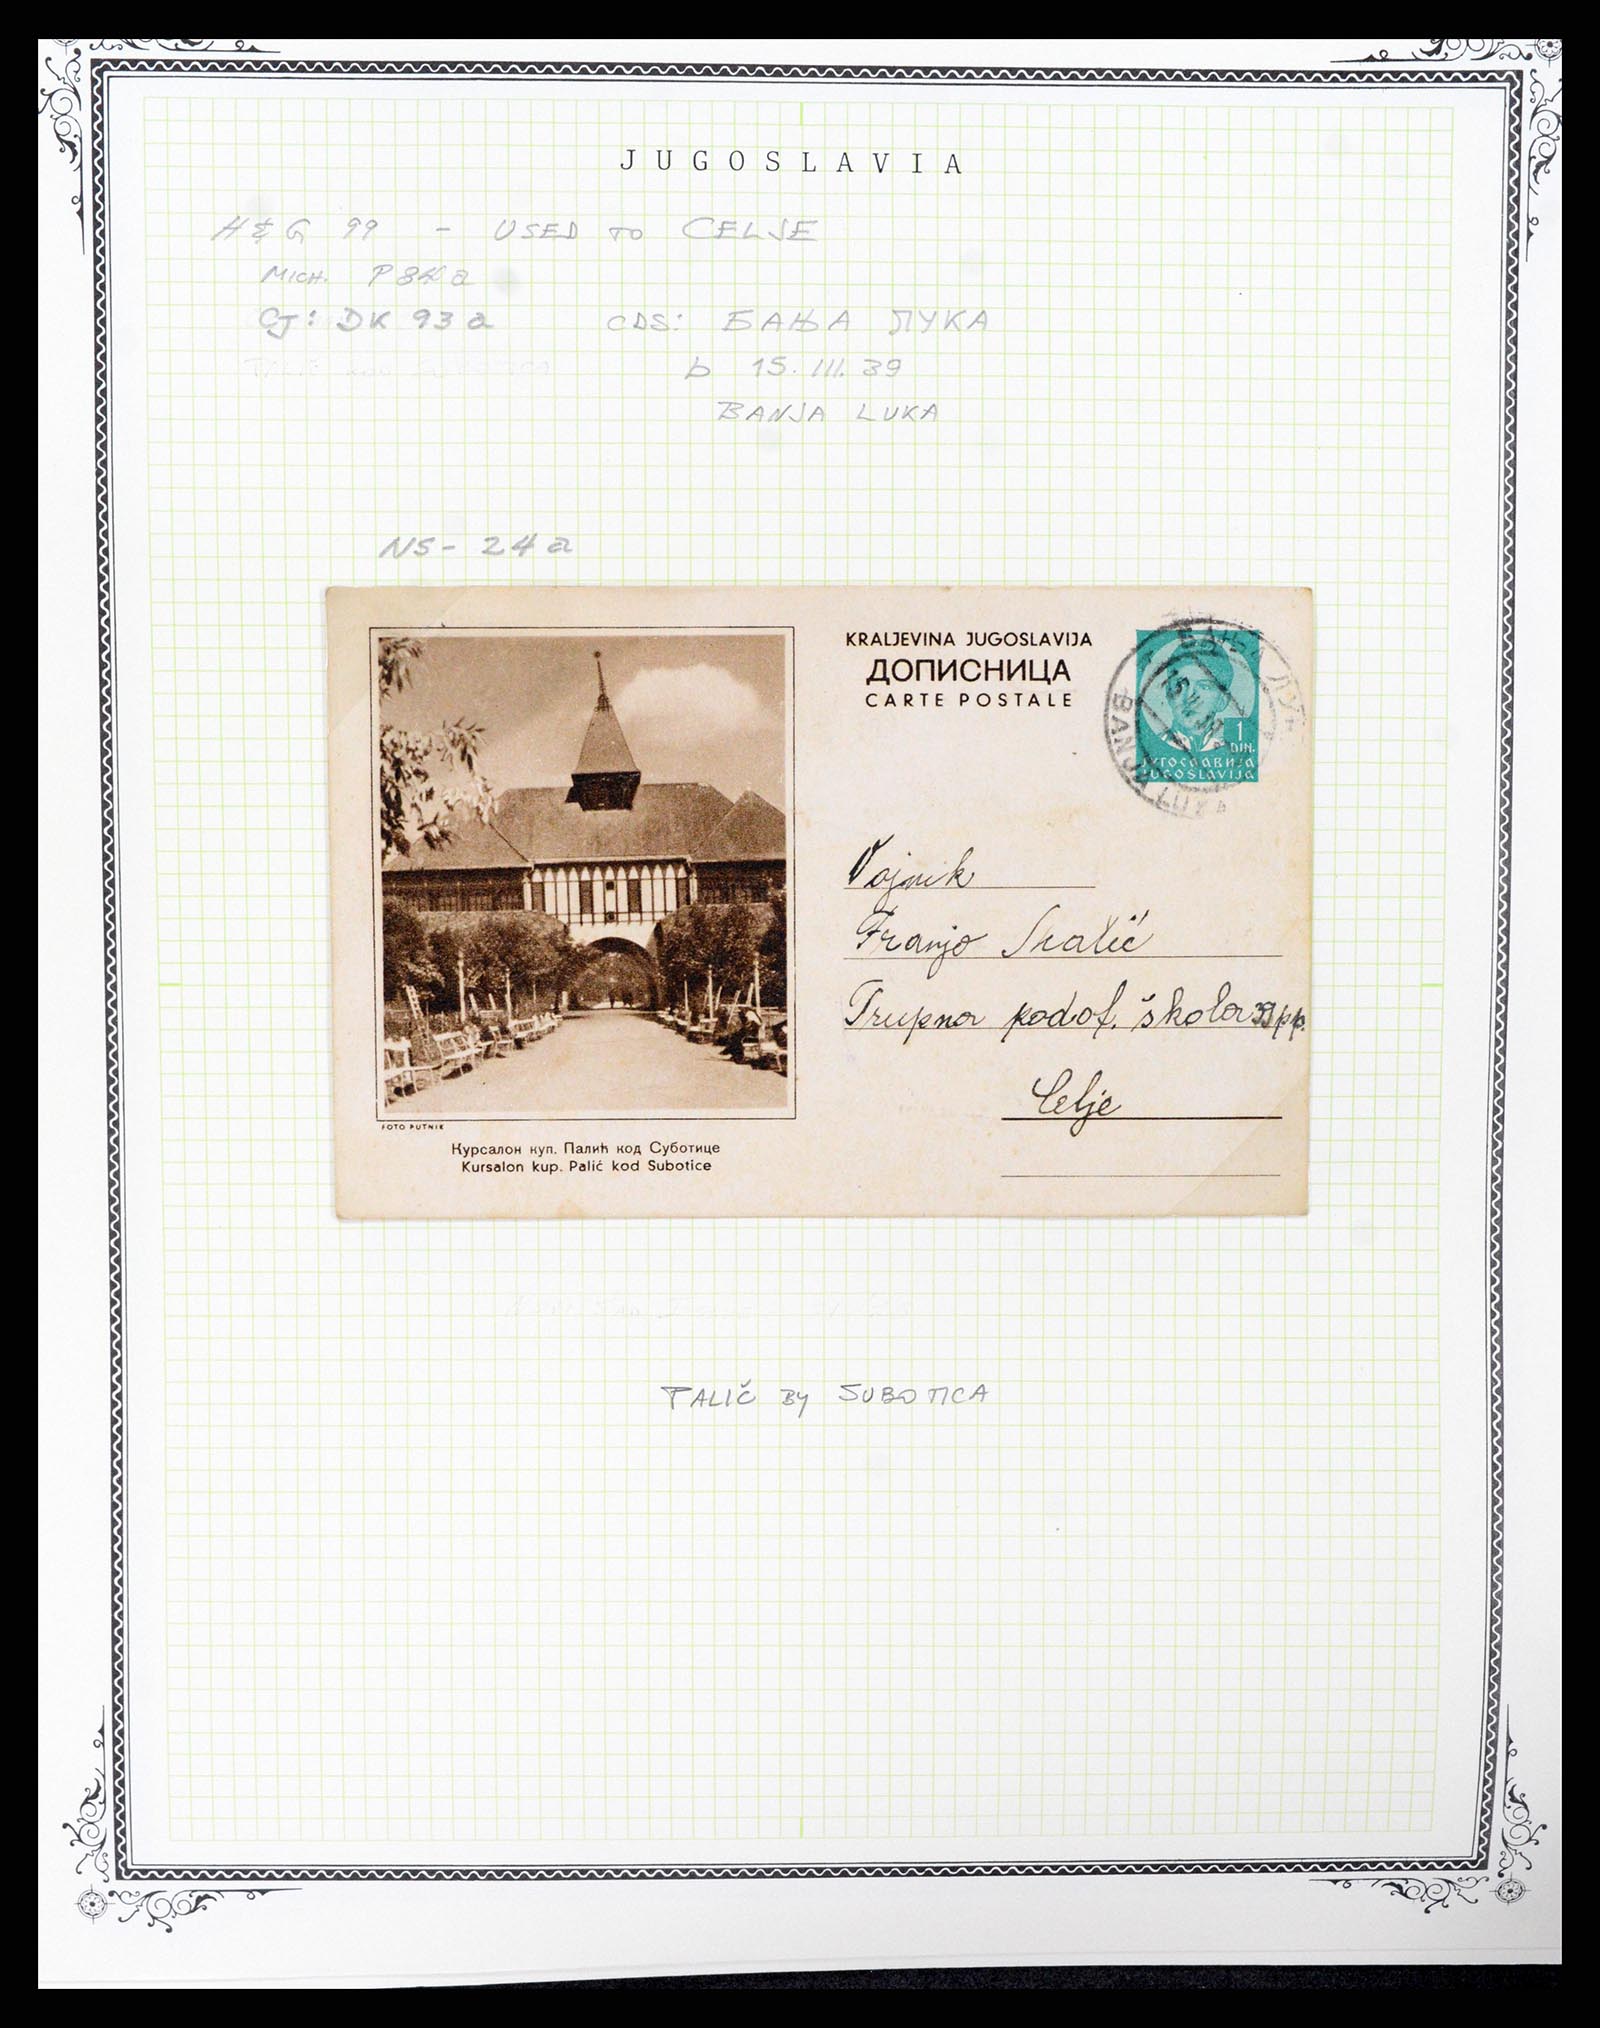 JUGOSLAVIA
H&G 99 - USED TO CELJE
MICH. P84a
CJ: DK 93a CDS: БАЊА ЛУКА
b 15.III.39
BANJA LUKA
NS-24a
KRALJEVINA JUGOSLAVIJA
ДОПИСНИЦА
CARTE POSTALE
1
DIN.
ЈУГОСЛАВИЈА
JUGOSLAVIJA
БАЊА ЛУКА
BANJA LUKA
Vojnik
Franjo
Trupna podof. škola 39 pp.
Celje
FOTO PUTNIK
Курсалон куп. Палић код Суботице
Kursalon kup. Palić kod Subotice
PALIČ BY SUBOTICA